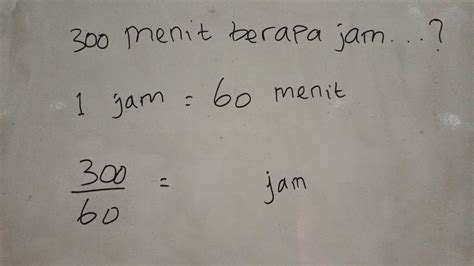 300 menit berapa jam...?
1 jam = 60 menit
300/60 = jam